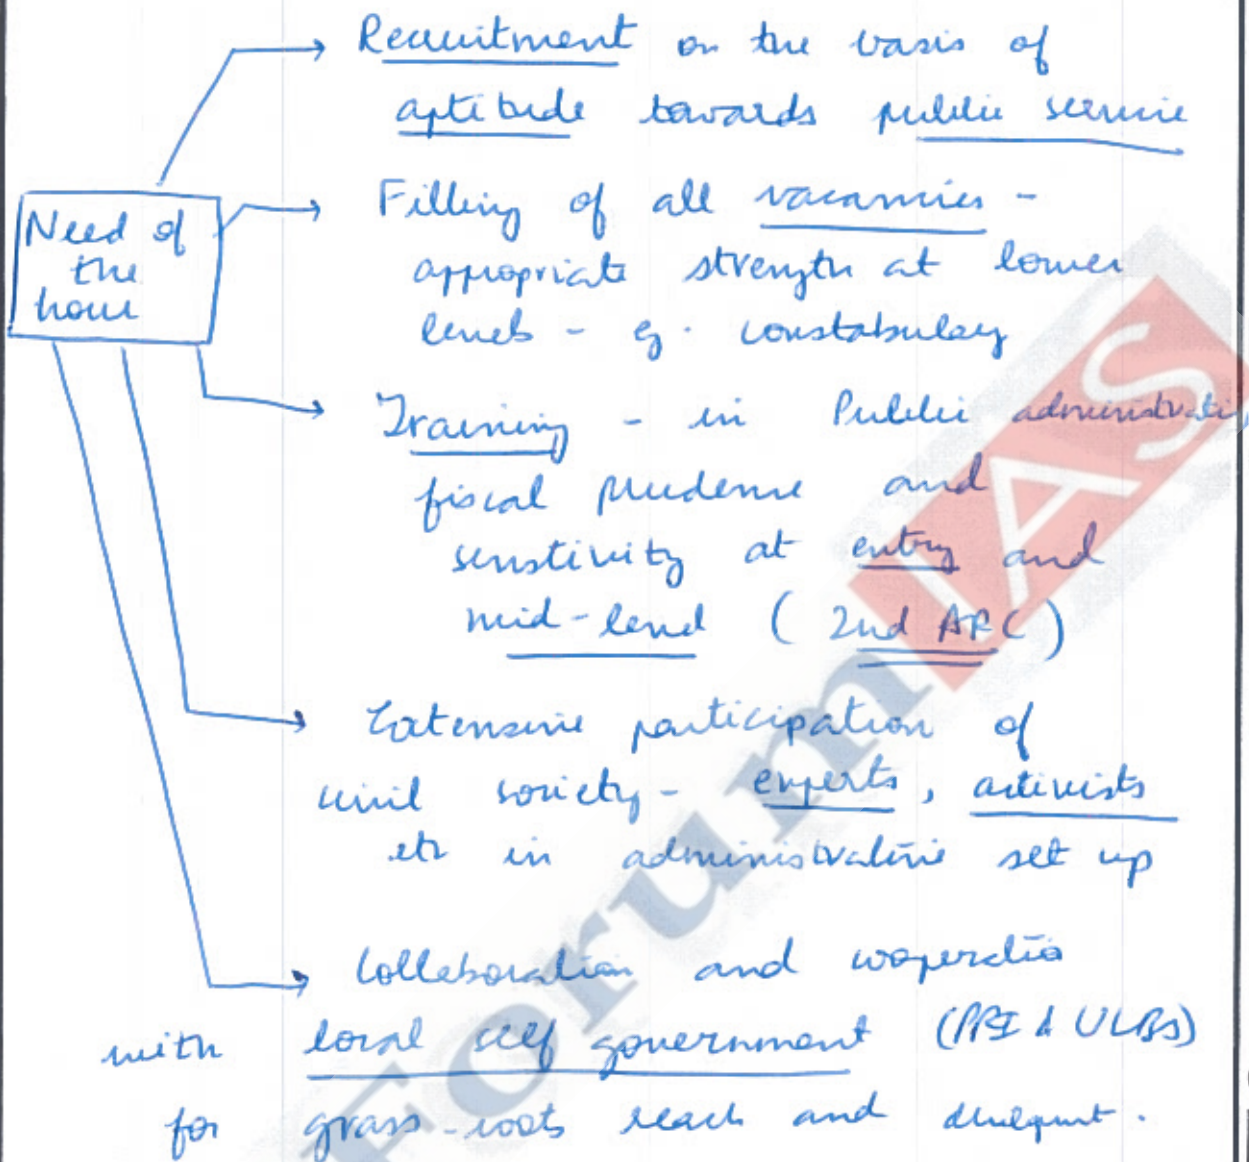 Recruitment on the basis of
aptitude towards public service
Need of
the
hour
Filling of all vacancies -
appropriate strength at lower
levels - eg. constabulary
Training - in Public administrati
fiscal prudence and
senstivity at entry and
mid-level (2nd ARC)
Extensive participation of
civil society - experts, activists
etc in administrative set up
Collaboration and cooperatio
with local self government (PRI & ULBs)
for grass-roots reach and
Forum IAS